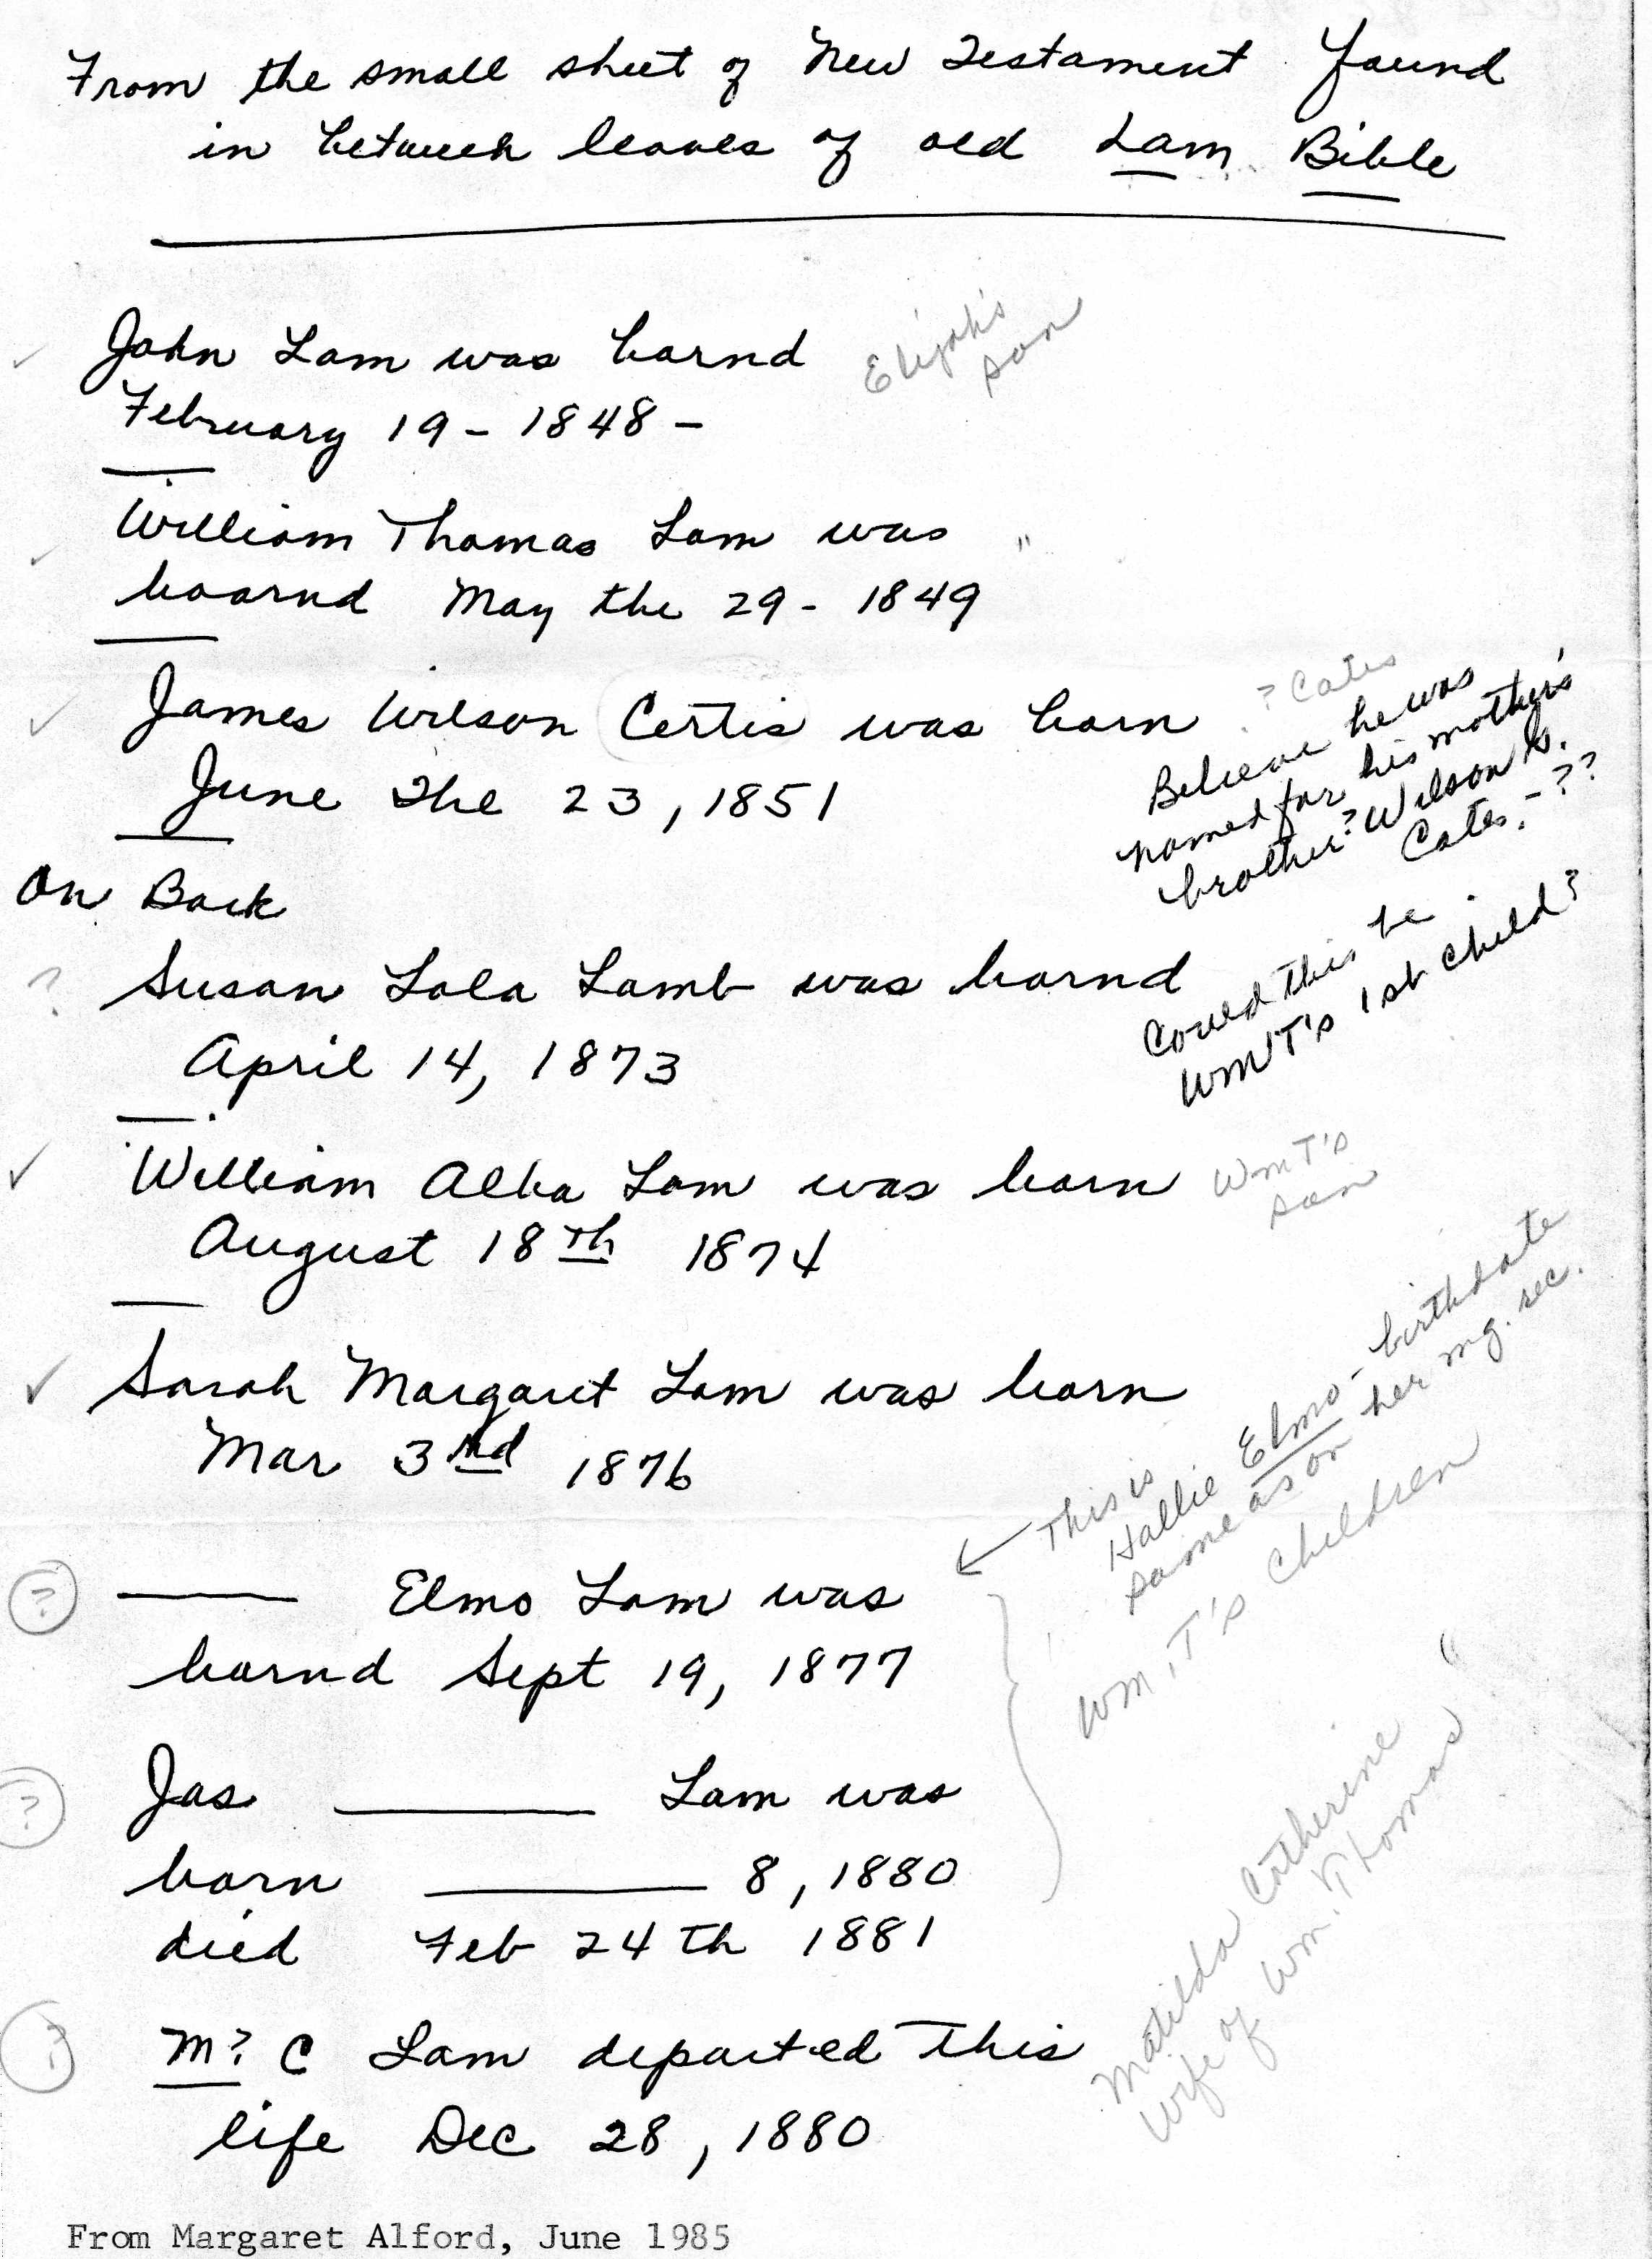 From the small sheet of New Testament found
in between leaves of old Lam Bible
John Lam was barnd
Elijah's
son
February 19 - 1848 -
William Thomas Lam was "
boarnd May the 29 - 1849
James Wilson Certis was born
? Cates
Believe he was
named for his mother's
brother? Wilson
Cates. - ??
June The 23, 1851
On Back
Susan Lola Lamb was barnd
Could this be
WmT's 1st child?
April 14, 1873
William Alba Lam was born
WmT's
son
August 18th 1874
Sarah Margaret Lam was born
Mar 3rd 1876
This is
Hallie Elmo - birthdate
same as on her mg. rec.
? —— Elmo Lam was
barnd Sept 19, 1877
Wm. T's children
? Jas —— Lam was
born —— 8, 1880
died Feb 24th 1881
? M? C Lam departed this
life Dec 28, 1880
Matilda Catherine
wife of Wm. Thomas
From Margaret Alford, June 1985